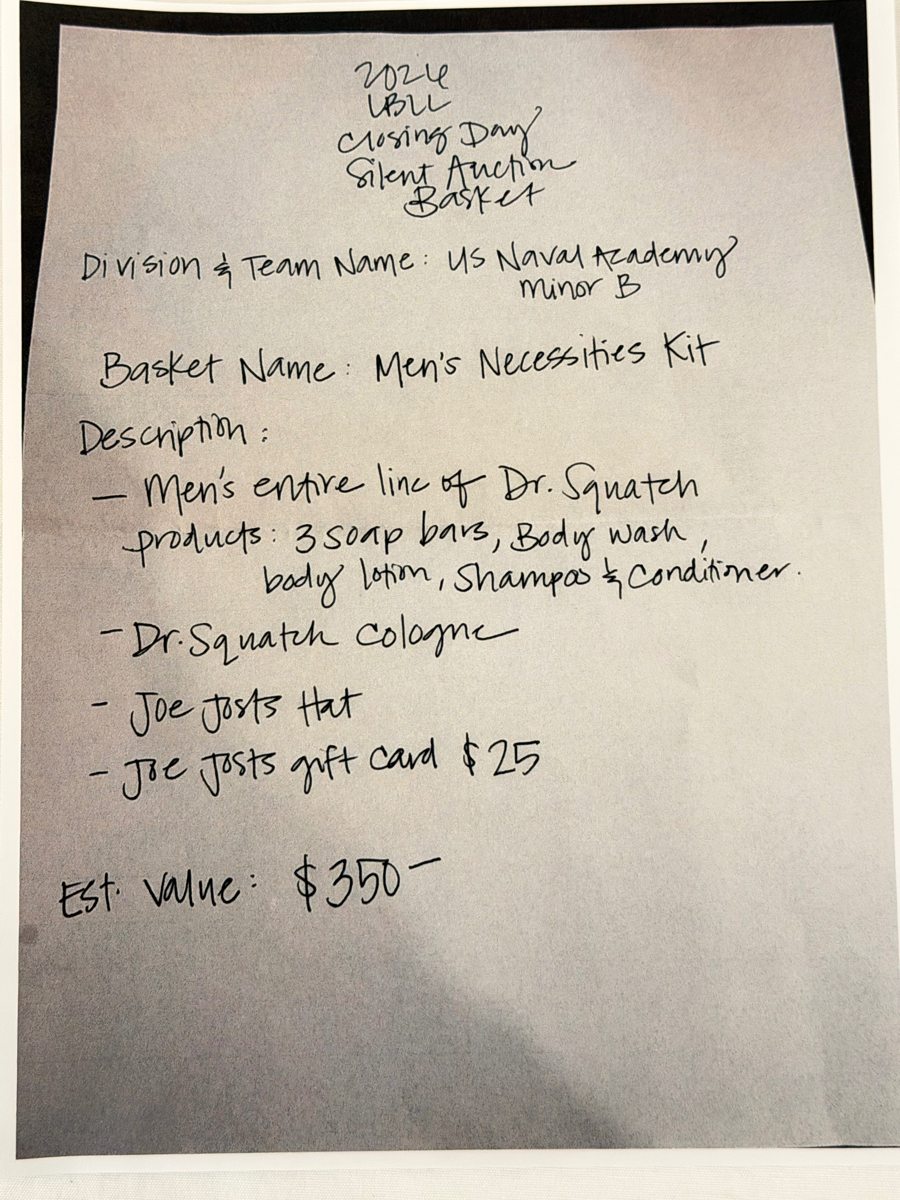 2024
LBLL
Closing Day
Silent Auction
Basket
Division & Team Name: US Naval Academy
Minor B
Basket Name: Men's Necessities Kit
Description:
— Men's entire line of Dr. Squatch
products: 3 soap bars, Body wash,
body lotion, Shampoo & Conditioner.
- Dr. Squatch Cologne
- Joe Josts Hat
- Joe Josts gift card $25
Est. Value: $350—